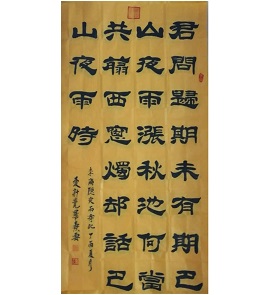 君問歸期未有期巴
山夜雨漲秋池何當
共翦西窻燭却話巴
山夜雨時
丁酉夏